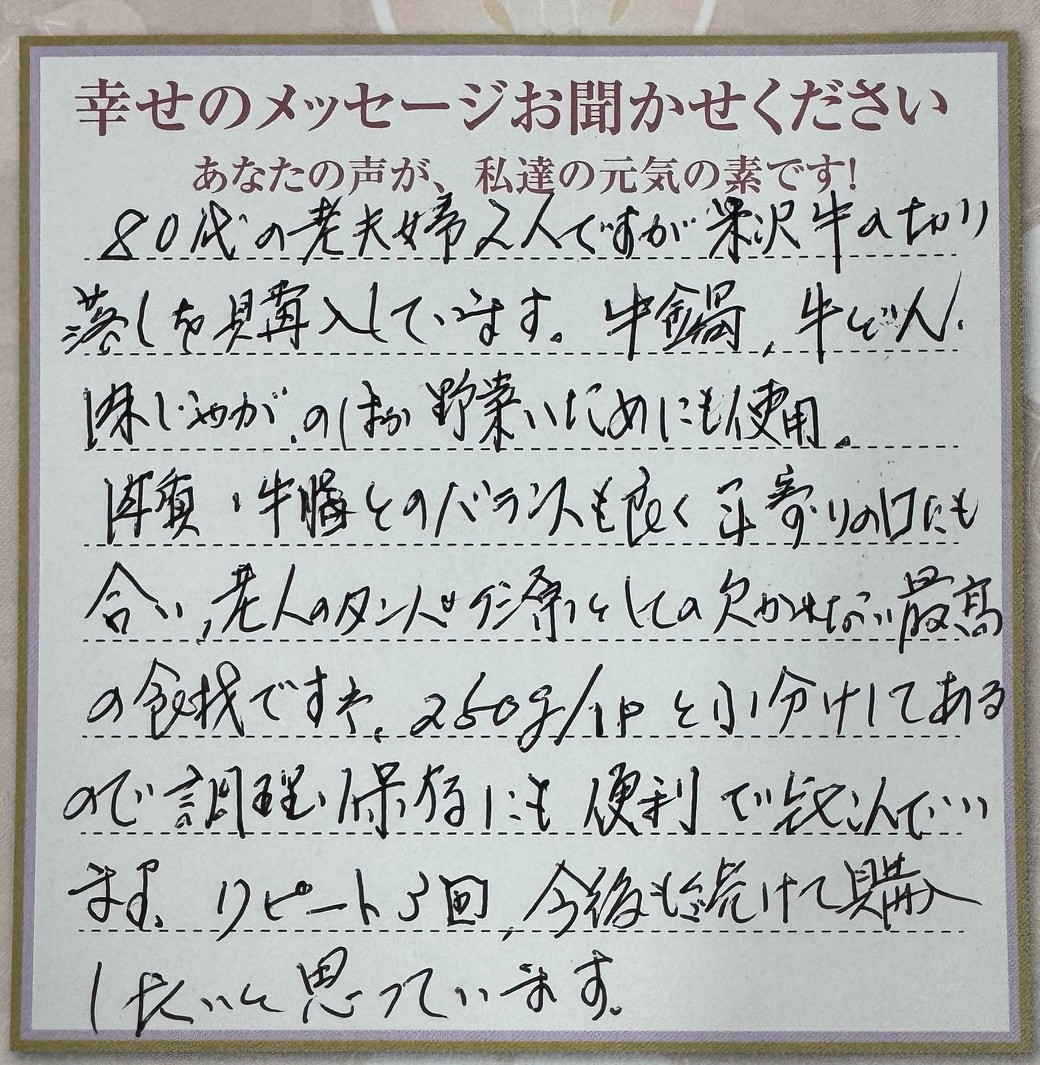 幸せのメッセージお聞かせください
あなたの声が、私達の元気の素です!
80代の老夫婦2人ですが米沢牛の切り
落しを購入しています。牛鍋、牛どん、
肉じゃが、のほか野菜いためにも使用。
肉質、牛脂とのバランスも良く年寄りの口にも
合い、老人のタンパク源としての欠かせない最高
の食材ですネ。250g/1pと小分けしてある
ので調理、保存にも便利で喜こんでい
ます。リピート3回、今後も続けて購入
したいと思っています。